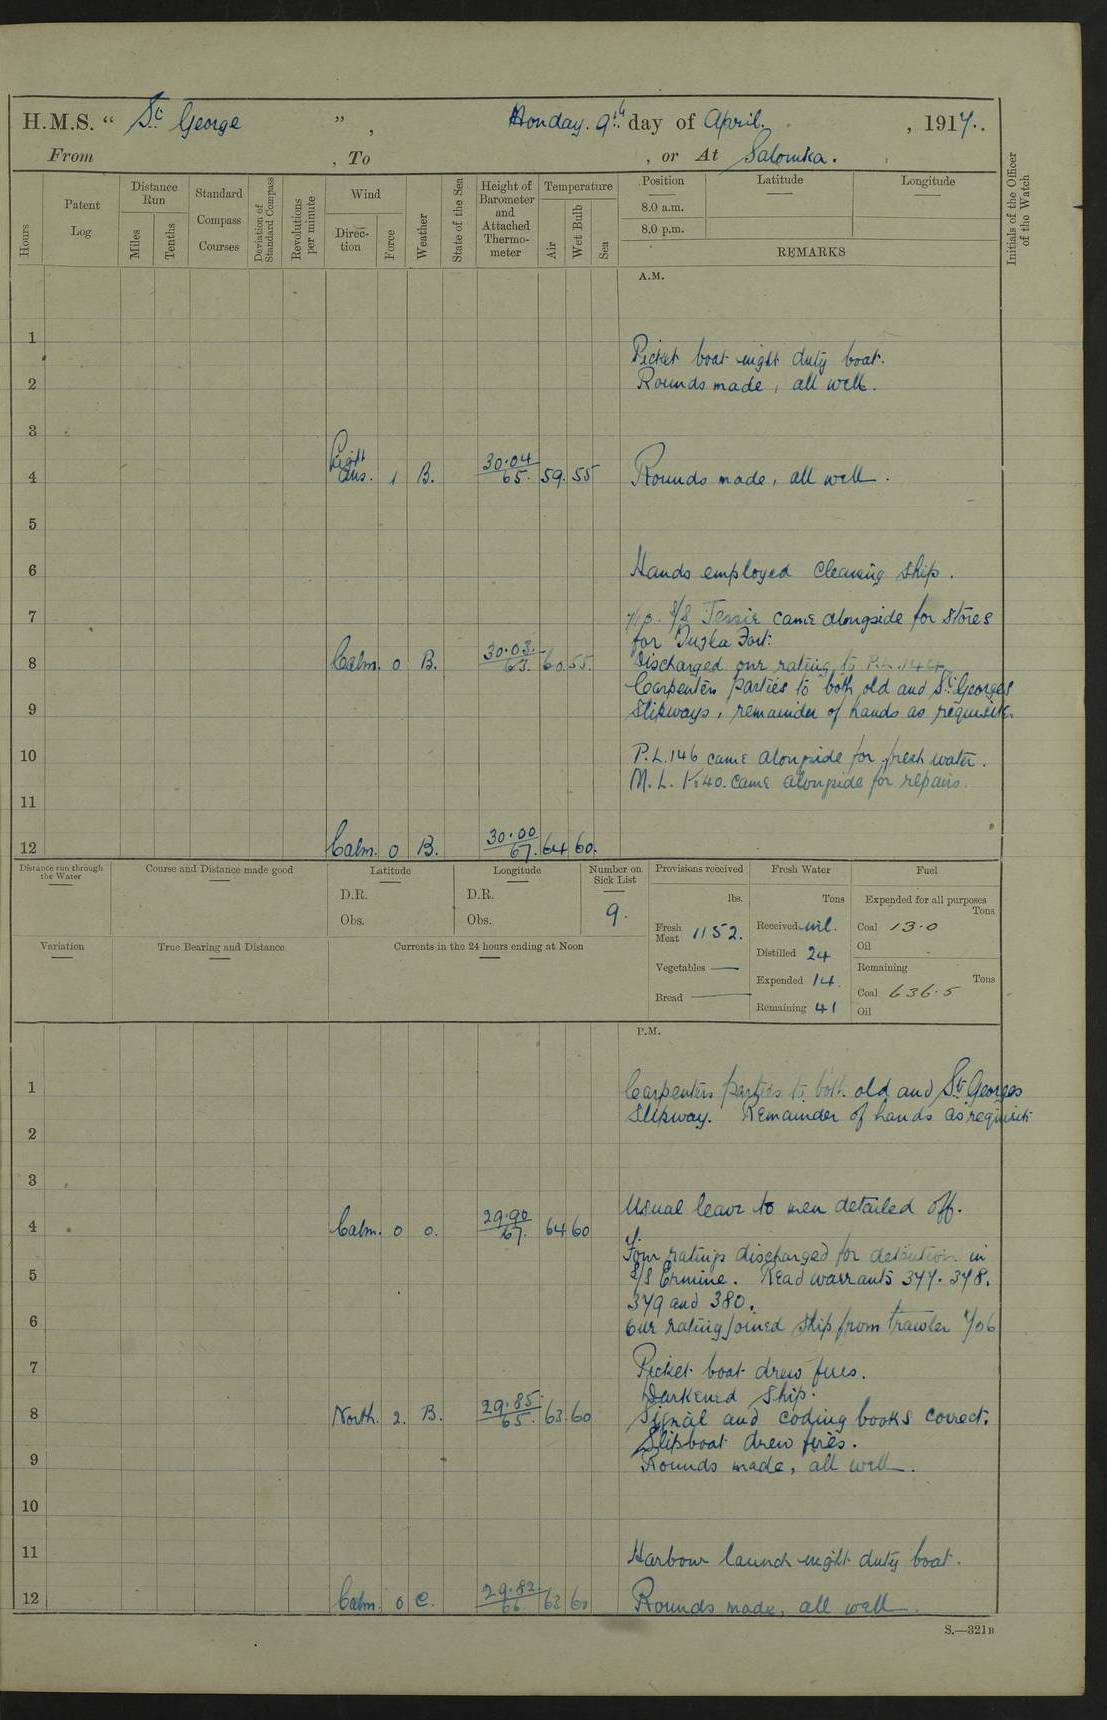 H.M.S. “ St George ” , Monday. 9th day of April. , 1917.
From , To , or At Salonika.
Hours
Patent Log
Distance Run
Miles
Tenths
Standard Compass Courses
Deviation of Standard Compass
Revolutions per minute
Wind
Direction
Force
Weather
State of the Sea
Height of Barometer and Attached Thermometer
Temperature
Air
Wet Bulb
Sea
Position Latitude Longitude
8.0 a.m.
8.0 p.m.
REMARKS
Initials of the Officer of the Watch
A.M.
1
Picket boat night duty boat.
2 Rounds made, all well.
3
4 Light airs. 1 B. 30.04/65. 59. 55 Rounds made, all well.
5
6 Hands employed cleaning ship.
7 S/S Jessie came alongside for stores
for Tuzla Fort.
8 Calm. 0 B. 30.03./63. 60. 55. Discharged one rating to P.L. 144.
Carpenters parties to both old and St Georges
9 Slipways, remainder of hands as requisite.
10 P.L. 146 came alongside for fresh water.
M.L. 40. came alongside for repairs.
11
12 Calm. 0 B. 30.00/67. 64 60.
Distance run through the Water
Course and Distance made good
Latitude
D.R.
Obs.
Longitude
D.R.
Obs.
Number on Sick List
9.
Provisions received
lbs.
Fresh Meat 1152.
Vegetables —
Bread —
Fresh Water
Tons
Received nil.
Distilled 24
Expended 14.
Remaining 41
Fuel
Expended for all purposes
Tons
Coal 13.0
Oil
Remaining
Tons
Coal 636.5
Oil
Variation
True Bearing and Distance
Currents in the 24 hours ending at Noon
P.M.
1 Carpenters parties to both old and St Georges
Slipway. Remainder of hands as requisite
2
3
Usual leave to men detailed off.
4 Calm. 0 0. 29.90/67. 64 60
Four ratings discharged for detention in
5 S/S Ermine. Read warrants 377. 378.
379 and 380.
6 One rating joined ship from trawler 706
7 Picket boat drew fires.
Darkened ship.
8 North. 2. B. 29.85./65. 63. 60 Signal and coding books correct.
Slipboat drew fires.
9 Rounds made, all well.
10
11 Harbour launch night duty boat.
12 Calm. 0 C. 29.82/66. 63 60 Rounds made, all well.
S.—321B